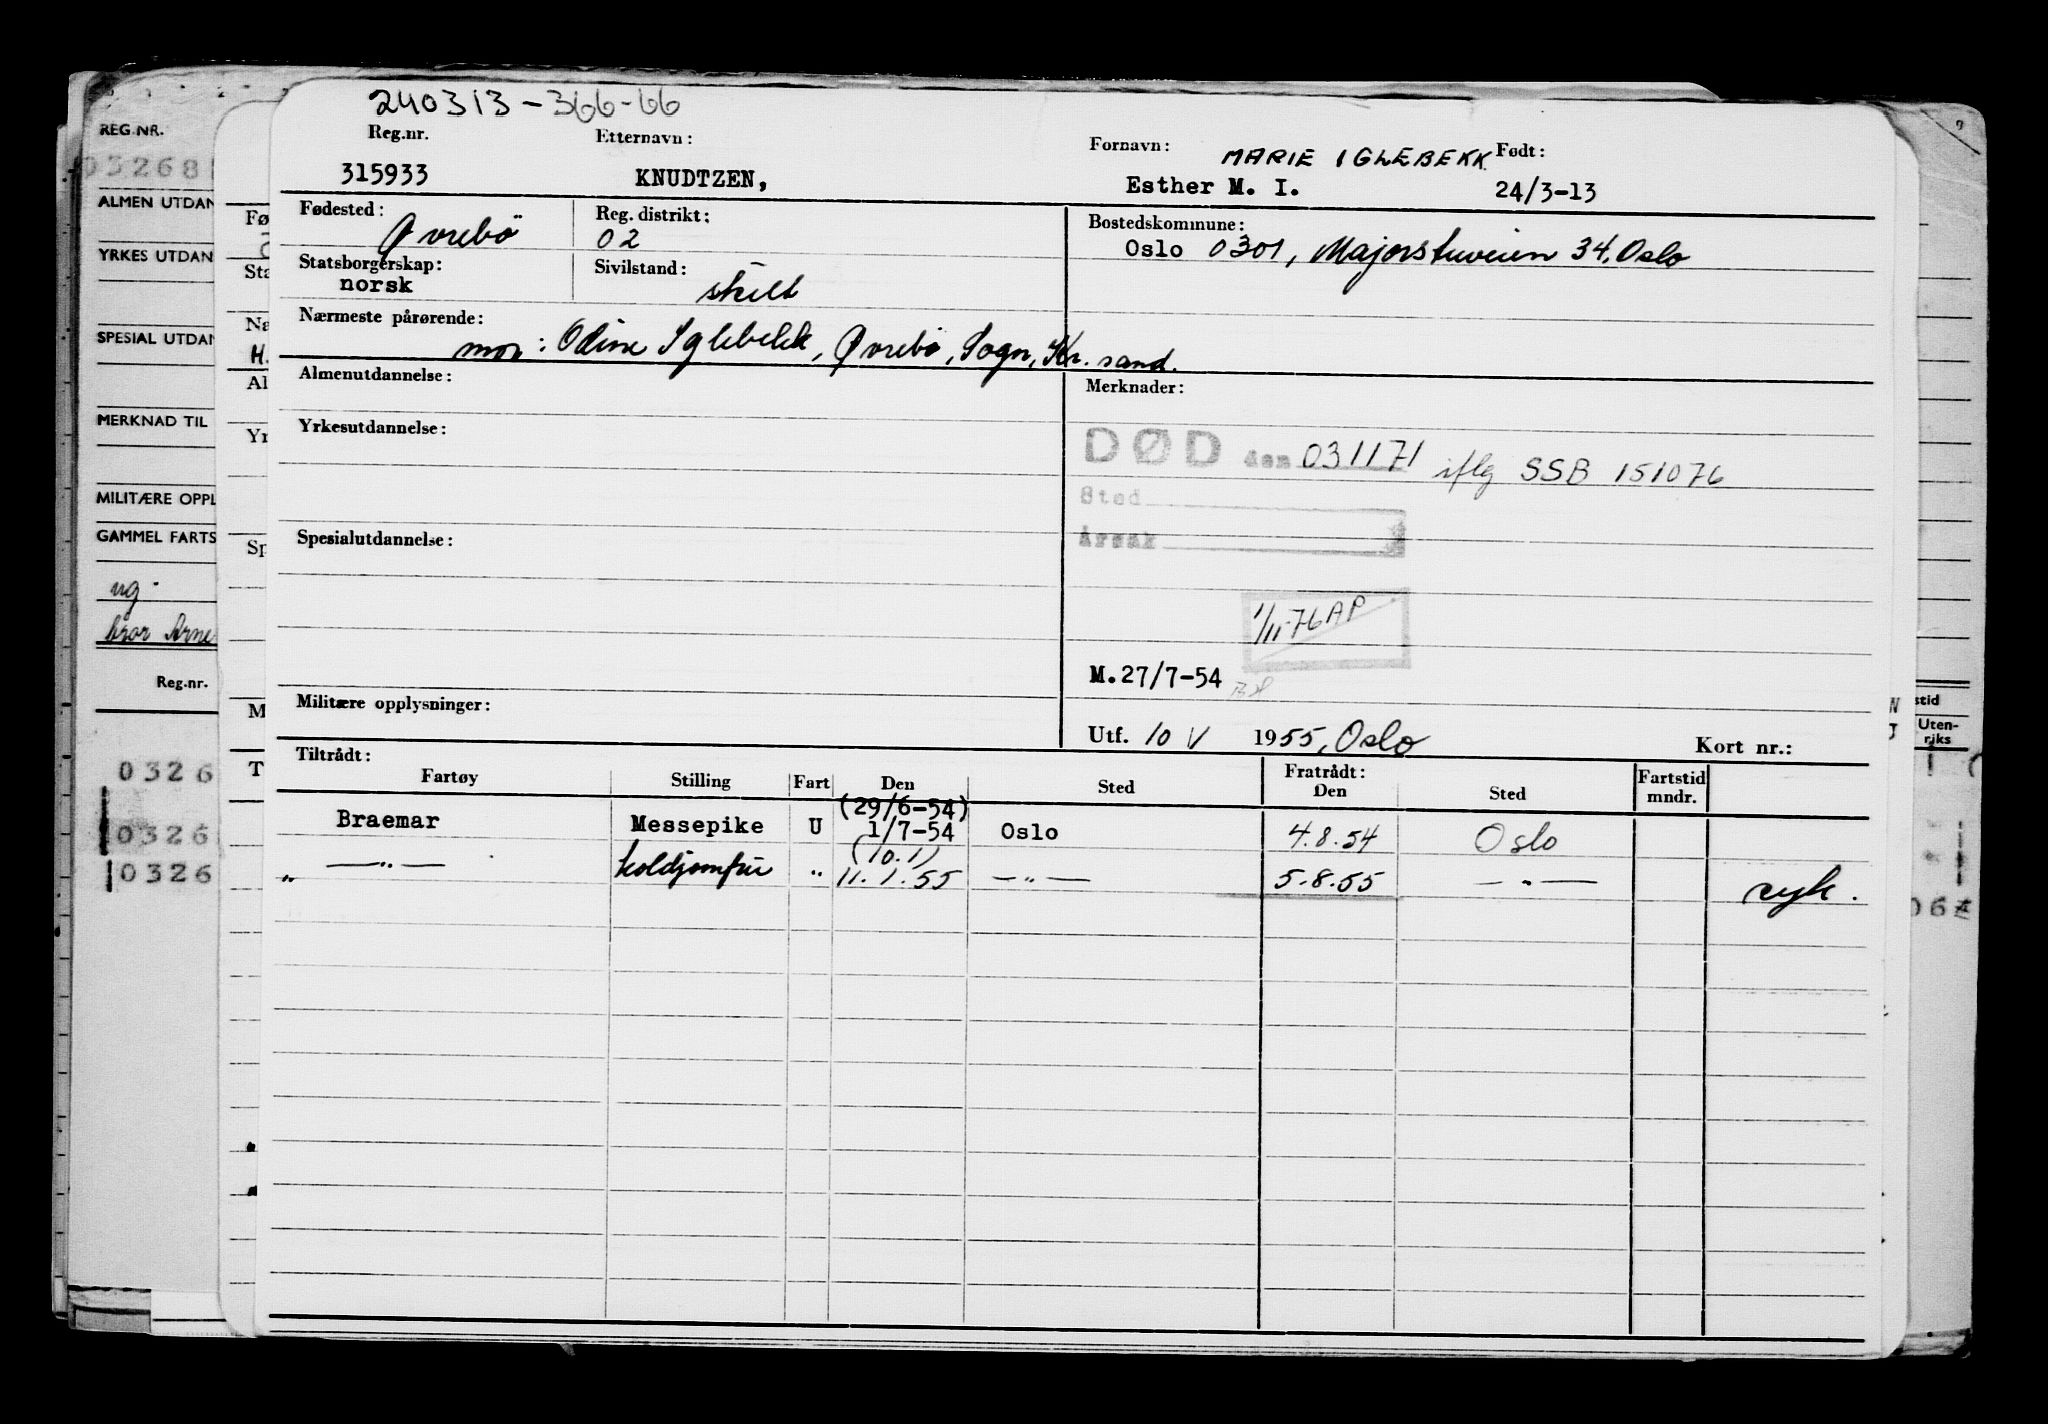 240313-366-66
Reg.nr. Etternavn: Fornavn: MARIE IGLEBEKK. Født:
315933 KNUDTZEN, Esther M. I. 24/3-13
Fødested: Øvrebö Reg. distrikt: 02 Bostedskommune:
Oslo 0301, Majorstuveien 34, Oslo
Statsborgerskap: norsk Sivilstand: skilt
Nærmeste pårørende:
mor: Odine Iglebekk, Øvrebö, Sogn, Kr. sand.
Almenutdannelse: Merknader:
Yrkesutdannelse:
DØD den 031171 iflg SSB 151076
Sted
Årsak
Spesialutdannelse:
1/11-76 AP
M. 27/7-54
Militære opplysninger:
Utf. 10 V 1955, Oslo Kort nr.:
Tiltrådt: Fratrådt: Fartstid
Fartøy Stilling Fart Den Sted Den Sted mndr.
(29/6-54)
Braemar Messepike U 1/7-54 Oslo 4.8.54 Oslo
(10.1)
" —"— koldjomfru " 11.1.55 —"— 5.8.55 —"— syk.
REG.NR.
03268
ALMEN UTDAN
YRKES UTDAN
SPESIAL UTDAN
MERKNAD TIL
MILITÆRE OPPL
GAMMEL FARTS
ug.
bror Arne
Reg.nr.
0326
0326
0326
Fø
Sta
Na
H.
Al
Yr
Sp
M
T
stid
Uten-
riks